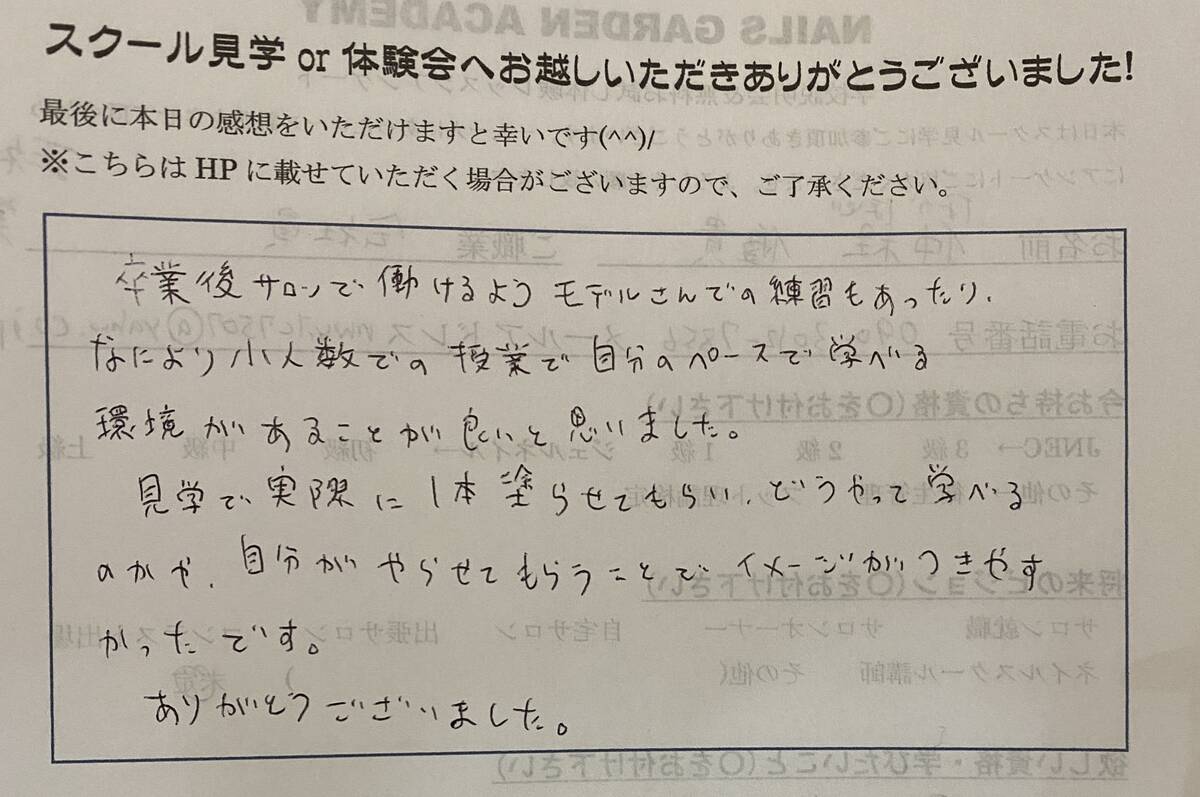 スクール見学 or 体験会へお越しいただきありがとうございました!
最後に本日の感想をいただけますと幸いです(^^)/
※こちらは HP に載せていただく場合がございますので、ご了承ください。
卒業後サロンで働けるようモデルさんでの練習もあったり、
なにより小人数での授業で自分のペースで学べる
環境があることが良いと思いました。
見学で実際に1本塗らせてもらい、どうやって学べる
のかや、自分がやらせてもらうことでイメージがつきやす
かったです。
ありがとうございました。